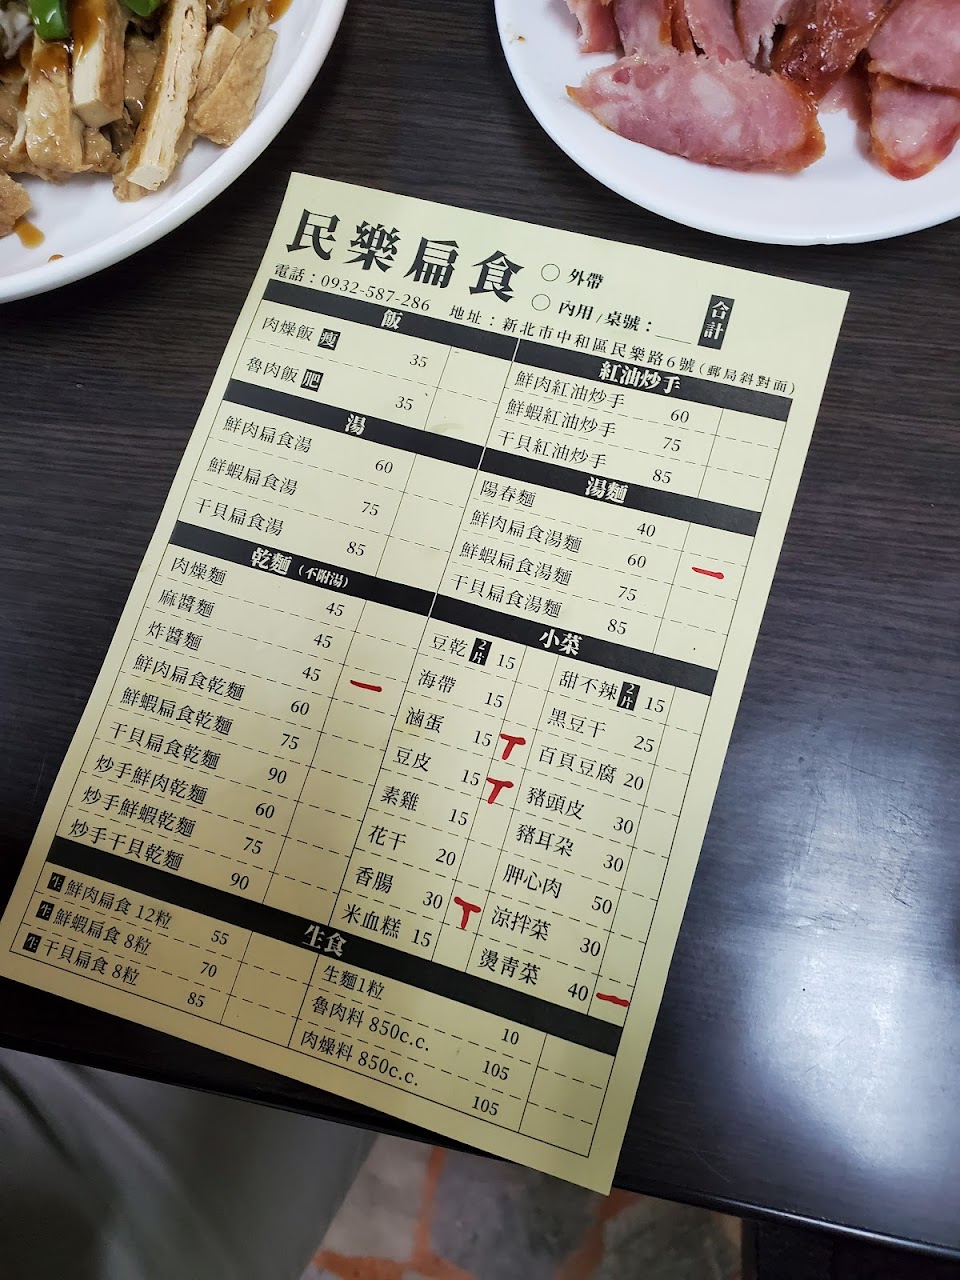 民樂扁食
○ 外帶
○ 內用 / 桌號：
合計
電話：0932-587-286 地址：新北市中和區民樂路6號(郵局斜對面)
飯
肉燥飯 瘦 35
魯肉飯 肥 35
湯
鮮肉扁食湯 60
鮮蝦扁食湯 75
干貝扁食湯 85
乾麵 (不附湯)
肉燥麵 45
麻醬麵 45
炸醬麵 45
鮮肉扁食乾麵 60
鮮蝦扁食乾麵 75
干貝扁食乾麵 90
炒手鮮肉乾麵 60
炒手鮮蝦乾麵 75
炒手干貝乾麵 90
紅油炒手
鮮肉紅油炒手 60
鮮蝦紅油炒手 75
干貝紅油炒手 85
湯麵
陽春麵 40
鮮肉扁食湯麵 60
鮮蝦扁食湯麵 75
干貝扁食湯麵 85
小菜
豆乾 2片 15
海帶 15
滷蛋 15
豆皮 15
素雞 15
花干 20
香腸 30
米血糕 15
甜不辣 2片 15
黑豆干 25
百頁豆腐 20
豬頭皮 30
豬耳朵 30
胛心肉 50
涼拌菜 30
燙青菜 40
生食
生 鮮肉扁食 12粒 55
生 鮮蝦扁食 8粒 70
生 干貝扁食 8粒 85
生麵1粒 10
魯肉料 850c.c. 105
肉燥料 850c.c. 105